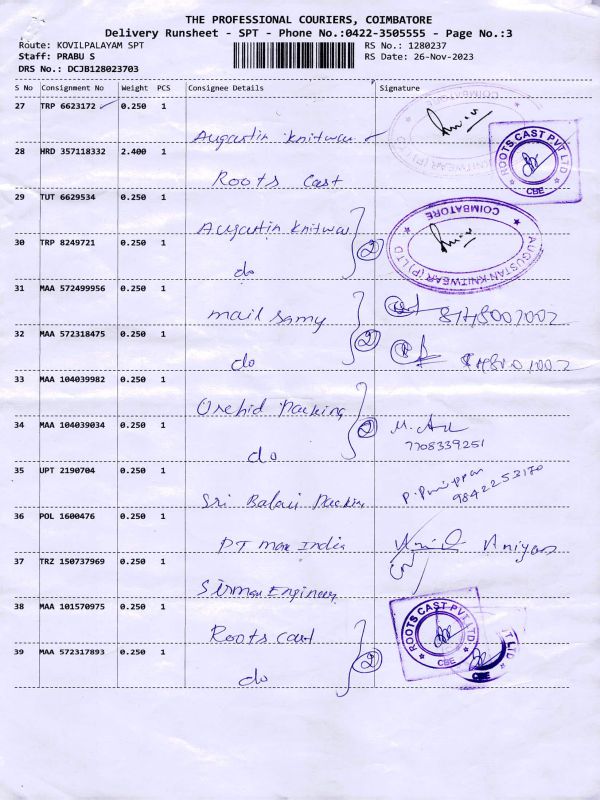 THE PROFESSIONAL COURIERS, COIMBATORE
Delivery Runsheet - SPT - Phone No.:0422-3505555 - Page No.:3
Route: KOVILPALAYAM SPT RS No.: 1280237
Staff: PRABU S RS Date: 26-Nov-2023
DRS No.: DCJB128023703
S No Consignment No Weight PCS Consignee Details Signature
27 TRP 6623172 0.250 1
Augastin Knitwar
28 HRD 357118332 2.400 1
Roots Cast
ROOTS CAST PVT LTD
CBE
29 TUT 6629534 0.250 1
Augastin Knitwar
30 TRP 8249721 0.250 1
do 2
AUGUSTAN KNITWEAR (P) LTD
COIMBATORE
31 MAA 572499956 0.250 1
mail Samy
32 MAA 572318475 0.250 1
do 2
33 MAA 104039982 0.250 1
Orchid Packing
34 MAA 104039034 0.250 1
do 2
7708339251
35 UPT 2190704 0.250 1
Sri Balaji Packing
9842253170
36 POL 1600476 0.250 1
PT max India
37 TRZ 150737969 0.250 1
Engineer
38 MAA 101570975 0.250 1
Roots Cast
39 MAA 572317893 0.250 1
do 2
ROOTS CAST PVT LTD
CBE